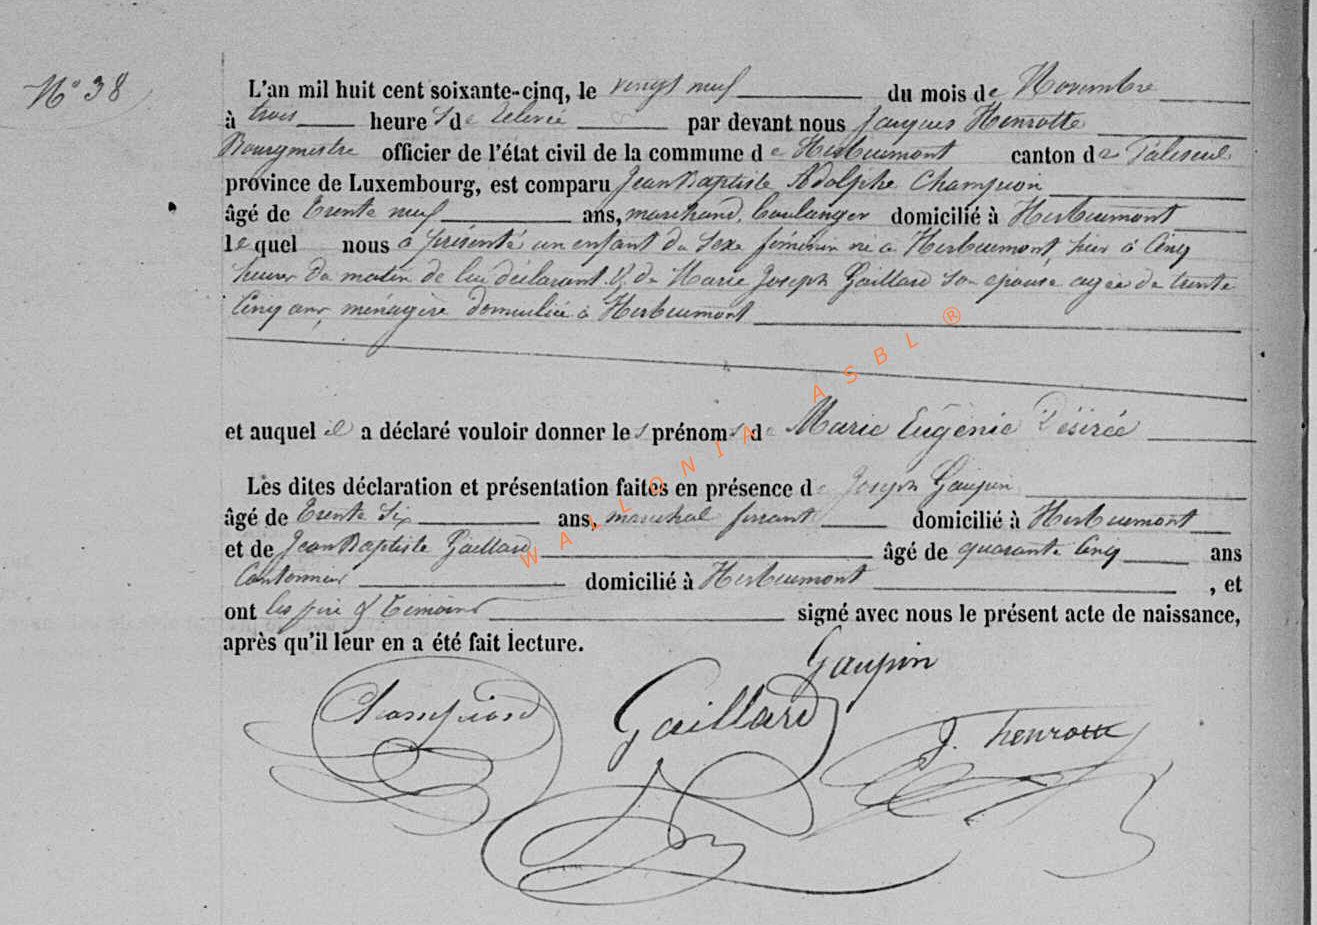 N° 38
L'an mil huit cent soixante-cinq, le vingt neuf du mois de Novembre
à trois heures de relevée par devant nous Jacques Henrotte
Bourgmestre officier de l'état civil de la commune de Herbeumont canton de Paliseul
province de Luxembourg, est comparu Jean Baptiste Adolphe Champion
âgé de trente neuf ans, marchand, boulanger domicilié à Herbeumont
lequel nous a présenté un enfant du sexe féminin né à Herbeumont, hier à cinq
heures du matin de lui déclarant & de Marie Joseph Gaillard son épouse agée de trente
cinq ans, ménagère domiciliée à Herbeumont
et auquel il a déclaré vouloir donner les prénoms de Marie Eugènie Désirée
Lès dites déclaration et présentation faites en présence de Joseph Gaupin
âgé de trente six ans, maréchal ferrant domicilié à Herbeumont
et de Jean Baptiste Gaillard âgé de quarante cinq ans
Cantonnier domicilié à Herbeumont, et
ont les père & témoins signé avec nous le présent acte de naissance,
après qu'il leur en a été fait lecture.
Gaupin
Champion Gaillard J. henrotte
WALLONIA ASBL ®